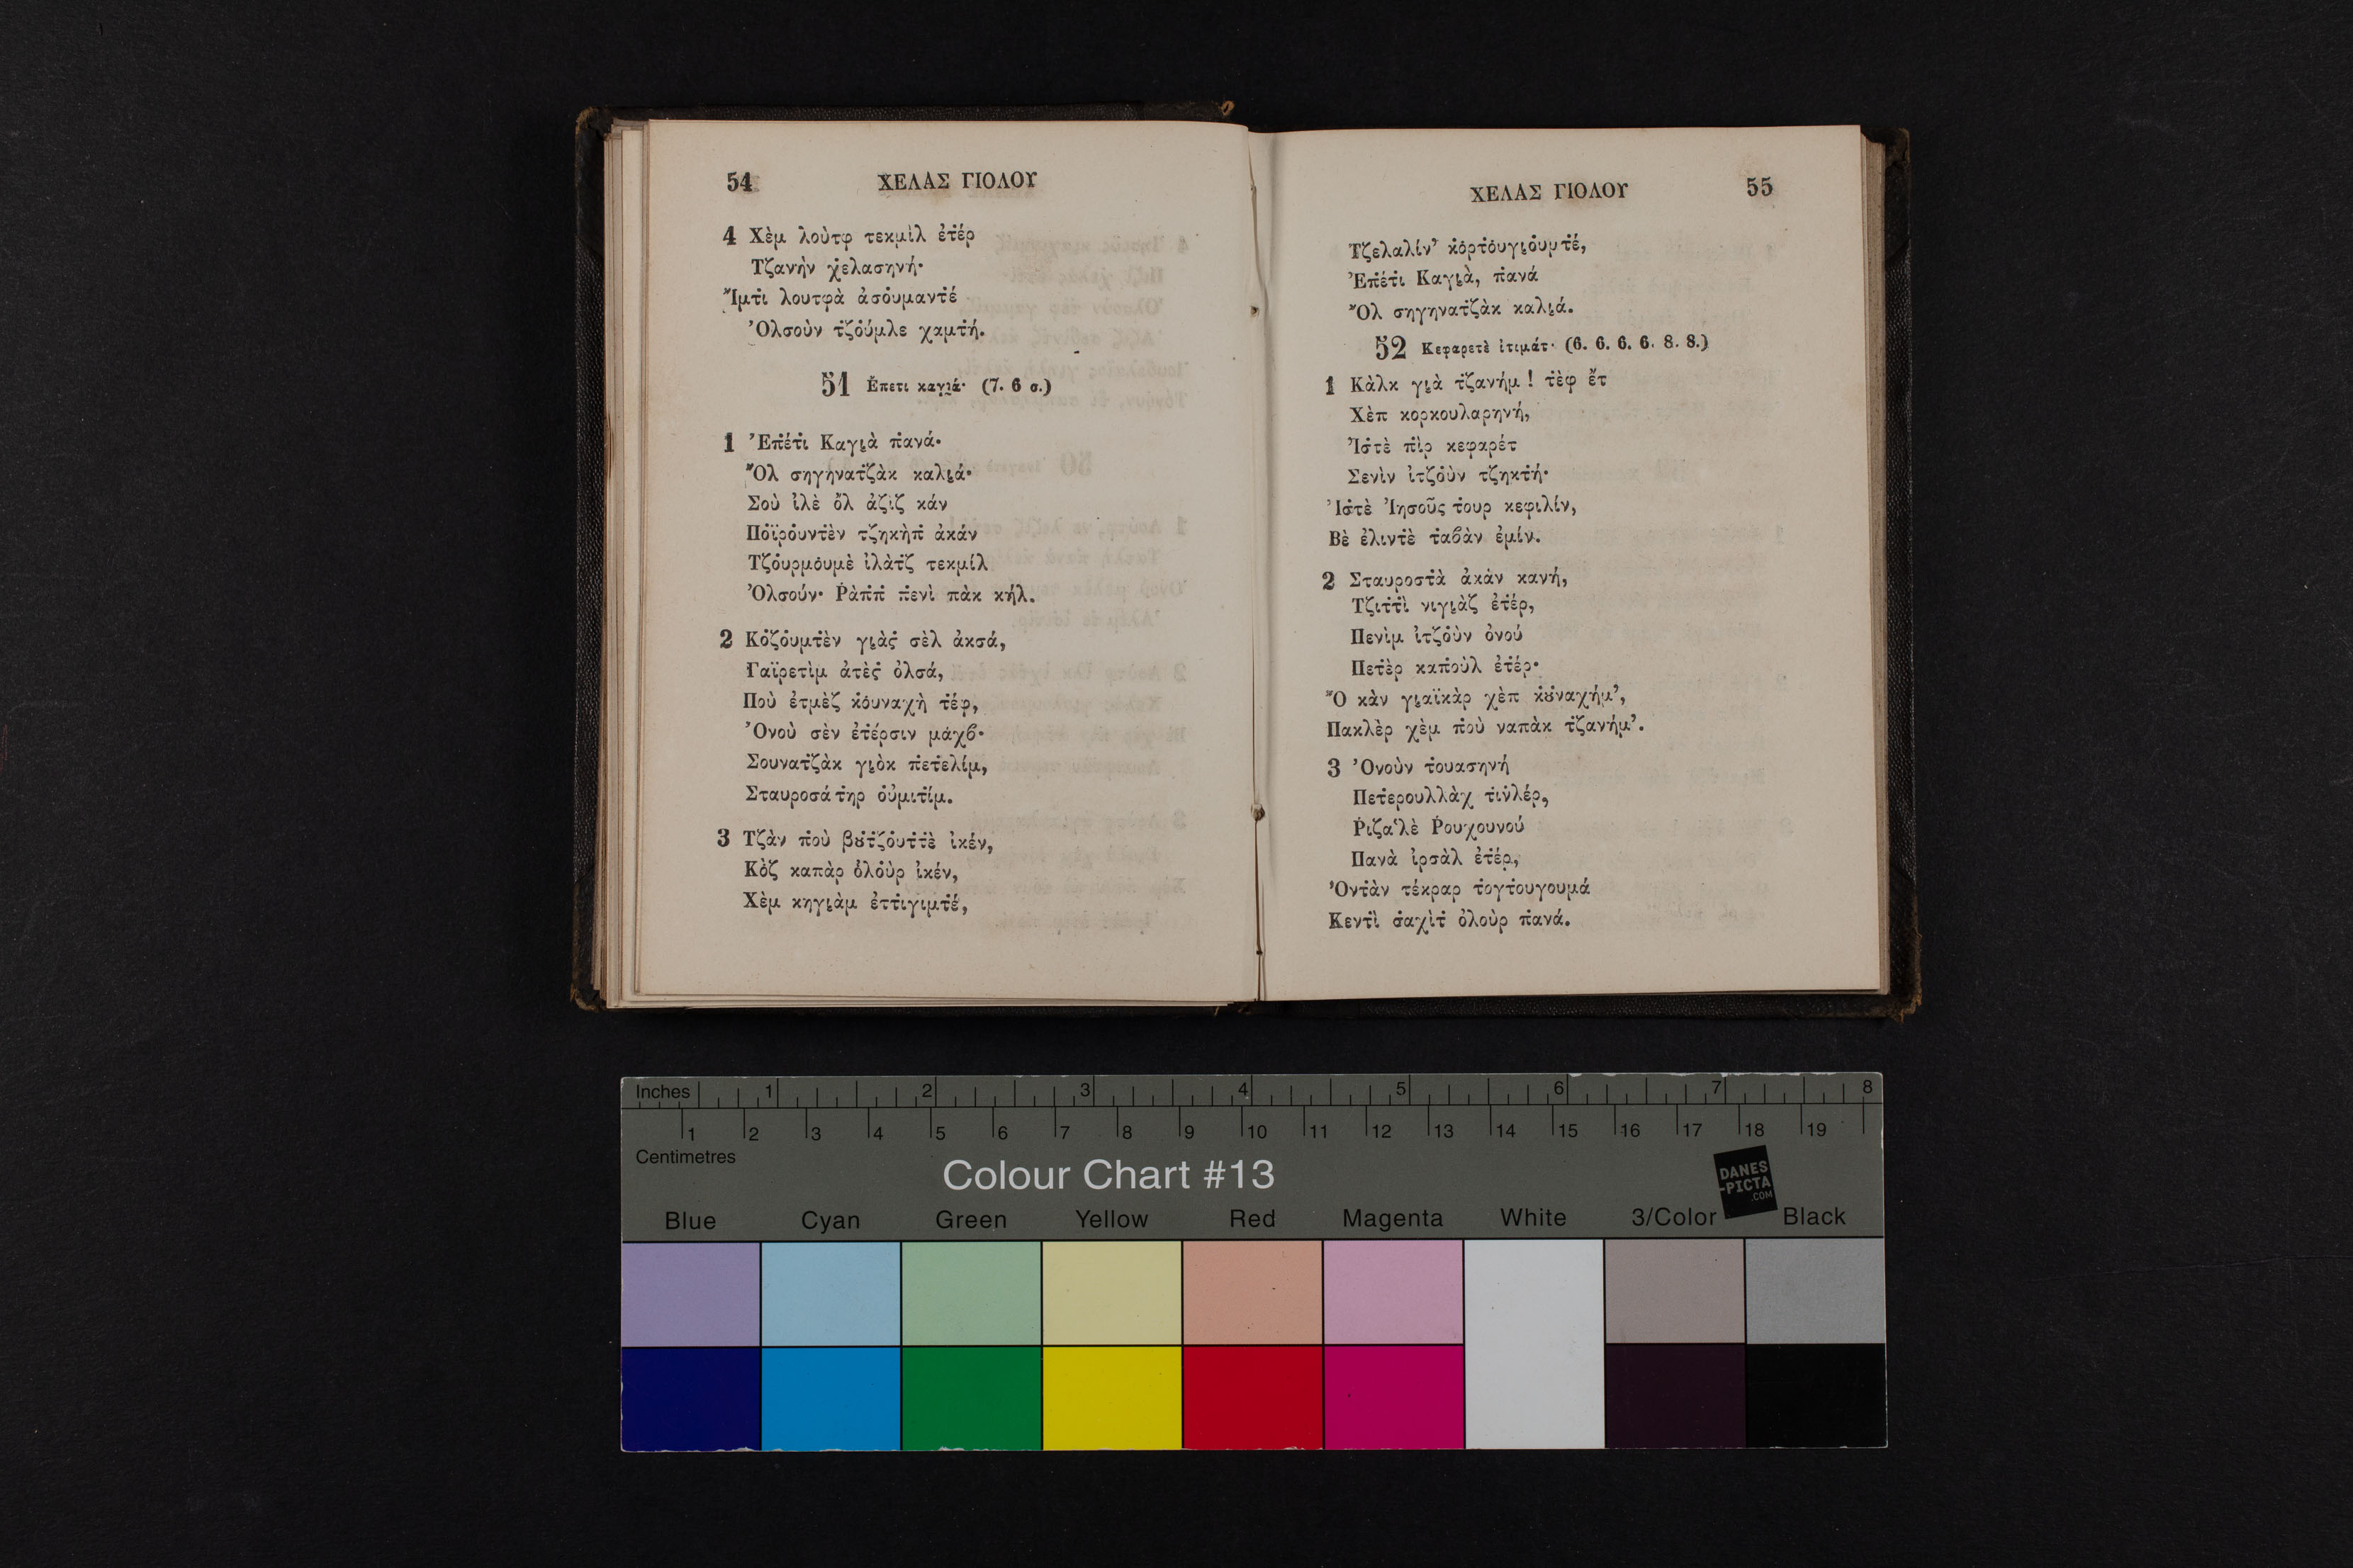 54 ΧΕΛΑΣ ΓΙΟΛΟΥ
4 Χὲμ λοὺτφ τεκμὶλ ἐτ̇έρ
Τζανὴν χ̇ελασηνή·
Ἴμτ̇ι λουτφὰ ἀσο̇υμαντ̇έ
Ὀλσοὺν τ̇ζο̇ύμλε χαμτ̇ή.
51 Ἔπετι καγι̯ά· (7. 6 σ.)
1 Ἐπ̇έτ̇ι Καγι̯ὰ π̇ανά·
Ὂλ σηγηνατ̇ζὰκ καλι̯ά·
Σοὺ ἰλὲ ὂλ ἀζὶζ κάν
Πο̇ϊρο̇υντ̇ὲν τζηκὴπ̇ ἀκάν
Τζο̇υρμο̇υμὲ ἰλὰτ̇ζ τεκμίλ
Ὀλσούν· Ῥὰπ̇π̇ π̇ενὶ πὰκ κήλ.
2 Κο̇ζο̇υμτ̇ὲν γι̯ὰς̇ σὲλ ἀκσά,
Γαϊρετὶμ ἀτὲς̇ ὀλσά,
Ποὺ ἐτμὲζ κο̇υναχὴ τ̇έφ,
Ὀνοὺ σὲν ἐτ̇έρσιν μάχϐ·
Σουνατ̇ζὰκ γι̯ὸκ π̇ετ̇ελίμ,
Σταυροσά τ̇ηρ ο̇ὐμιτ̇ίμ.
3 Τζὰν π̇οὺ βȣτ̇ζο̇υττ̇ὲ ἰκέν,
Κὸ̇ζ καπὰρ ὀ̇λο̇ὺρ ἰκέν,
Χὲμ κηγι̯ὰμ ἐττιγιμτ̇έ,
ΧΕΛΑΣ ΓΙΟΛΟΥ 55
Τζελαλίν᾽ κο̇ρτο̇υγι̯ο̇υμτ̇έ,
Ἐπ̇έτ̇ι Καγι̯ὰ, π̇ανά
Ὂλ σηγηνατ̇ζὰκ καλι̯ά.
52 Κεφαρετὲ ἰτιμάτ· (6. 6. 6. 6. 8. 8.)
1 Κὰλκ γι̯ὰ τ̇ζανήμ ! τ̇ὲφ ἔτ
Χὲπ κορκουλαρηνή,
Ἰς̇τὲ π̇ὶρ κεφαρέτ
Σενὶν ἰτζο̇ὺν τζηκτ̇ή·
Ἰς̇τὲ Ἰησοῦς τ̇ουρ κεφιλίν,
Βὲ ἐλιντ̇ὲ τ̇αϐὰν ἐμίν.
2 Σταυροστ̇ὰ ἀκὰν κανή,
Τζιτ̇τ̇ὶ νιγι̯ὰζ ἐτ̇έρ,
Πενὶμ ἰτζο̇ὺν ὀνού
Πετ̇ὲρ καπ̇οὺλ ἐτ̇έρ·
Ὂ κὰν γι̯αϊκὰρ χὲπ κȣ̇ναχήμ᾽,
Πακλὲρ χὲμ π̇οὺ ναπὰκ τ̇ζανήμ᾽.
3 Ὀνοὺν τ̇ουασηνή
Πετ̇ερουλλὰχ τ̇ινλέρ,
Ῥιζα᾽λὲ Ῥουχουνού
Πανὰ ἰρσὰλ ἐτ̇έρ,
Ὀντ̇ὰν τέκραρ τ̇ογτ̇ουγουμά
Κεντ̇ὶ σ̇αχὶτ̇ ὀλοὺρ π̇ανά.
Inches 1 2 3 4 5 6 7 8
1 2 3 4 5 6 7 8 9 10 11 12 13 14 15 16 17 18 19
Centimetres
Colour Chart #13
DANES
-PICTA
.COM
Blue Cyan Green Yellow Red Magenta White 3/Color Black